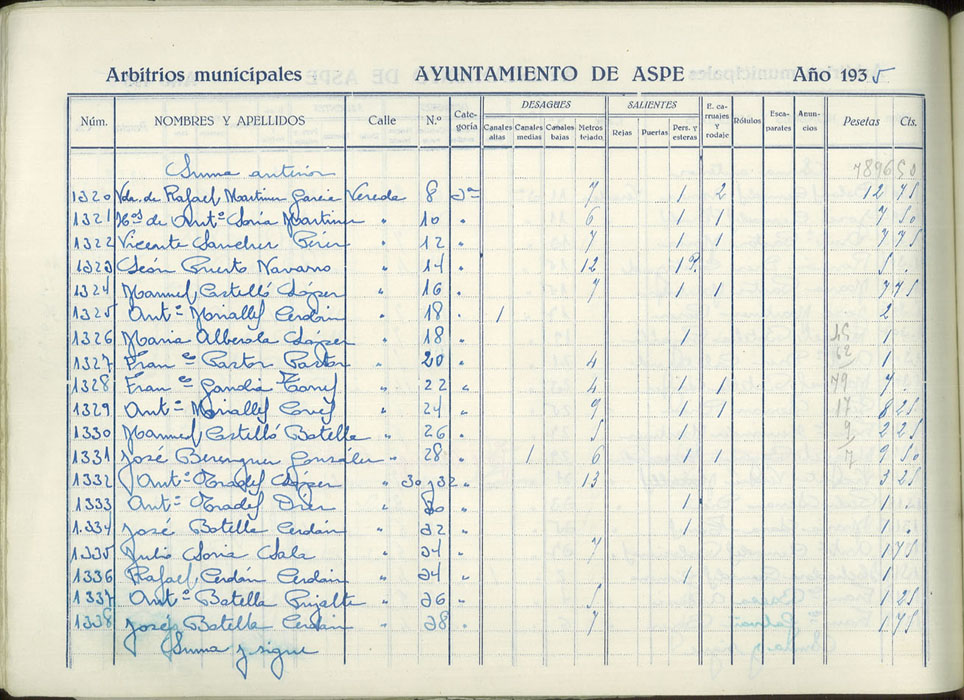 Arbitrios municipales AYUNTAMIENTO DE ASPE Año 1935
Núm. NOMBRES Y APELLIDOS Calle N.º Cate-goría DESAGUES Canales altas Canales medias Canales bajas Metros tejado SALIENTES Rejas Puertas Pers. y esteras E. ca-rruajes y rodaje Rótulos Esca-parates Anun-cios Pesetas Cts.
Suma anterior 7896 50
1320 Vda. de Rafael Martinez Garcia Vereda 8 3ª 7 1 2 12 75
1321 Hos de Antº Soria Martinez " 10 " 6 1 1 7 50
1322 Vicente Sanchez Pérez " 12 " 7 1 1 7 75
1323 León Puerto Navarro " 14 " 12 1 5 .
1324 Manuel Castelló López " 16 " 7 1 1 7 75
1325 Antº Mirallés Cerdán " 18 " 1 2
1326 Maria Alberola López " 18 " 1 15 1
1327 Franco Pastor Pastor " 20 " 4 62 1
1328 Franco Gandia Torres " 22 " 4 1 1 79 7
1329 Antº Mirallés " 24 " 9 1 1 17 8 25
1330 Manuel Castelló Botella " 26 " 5 1 9 2 25
1331 José Berenguer González " 28 " 1 6 1 1 7 9 50
1332 Antº López " 30 y 32 " 13 3 25
1333 Antº " " 1 1
1334 José Botella Cerdán " 22 " 1 1
1335 Julio Soria Sala " 24 " 7 1 75
1336 Rafael Cerdán Cerdán " 24 " 1 1
1337 Antº Botella Pujalte " 26 " 5 1 25
1338 José Botella Cerdán " 28 " 7 1 75
Suma y sigue